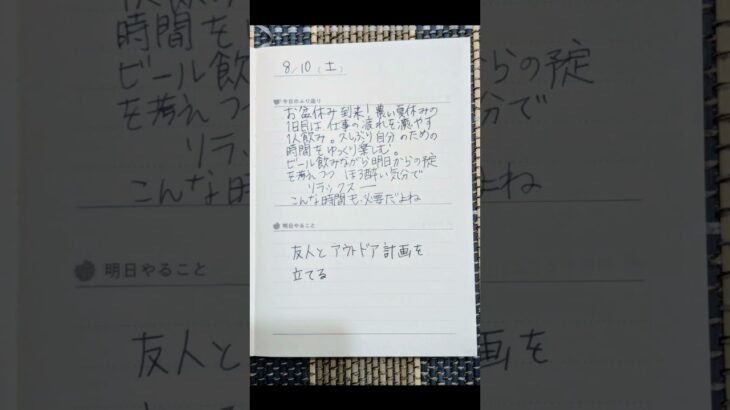 8/10(土)
今日のふり返り
お盆休み到来!暑い夏休みの
1日目は仕事の疲れを癒やす
1人飲み。久しぶり自分のための
時間をゆっくり楽しむ。
ビール飲みながら明日からの予定
を考えつつ ほろ酔い気分で
リラックスー
こんな時間も必要だよね
明日やること
友人とアウトドア計画を
立てる